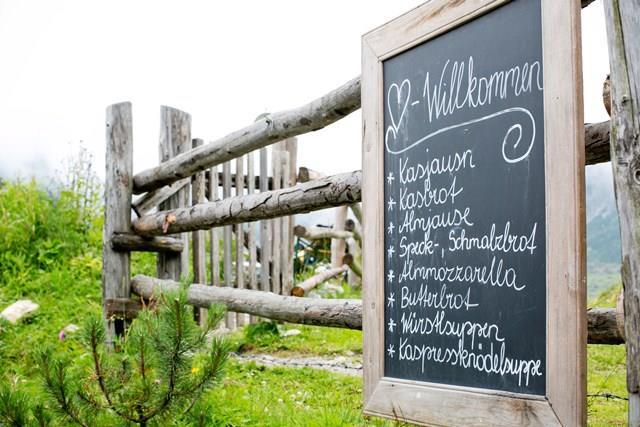 ♡-Willkommen
* Kasjausn
* Kasbrot
* Almjause
* Speck-, Schmalzbrot
* Almmozzarella
* Butterbrot
* Würstlsuppen
* Kaspressknödelsuppe